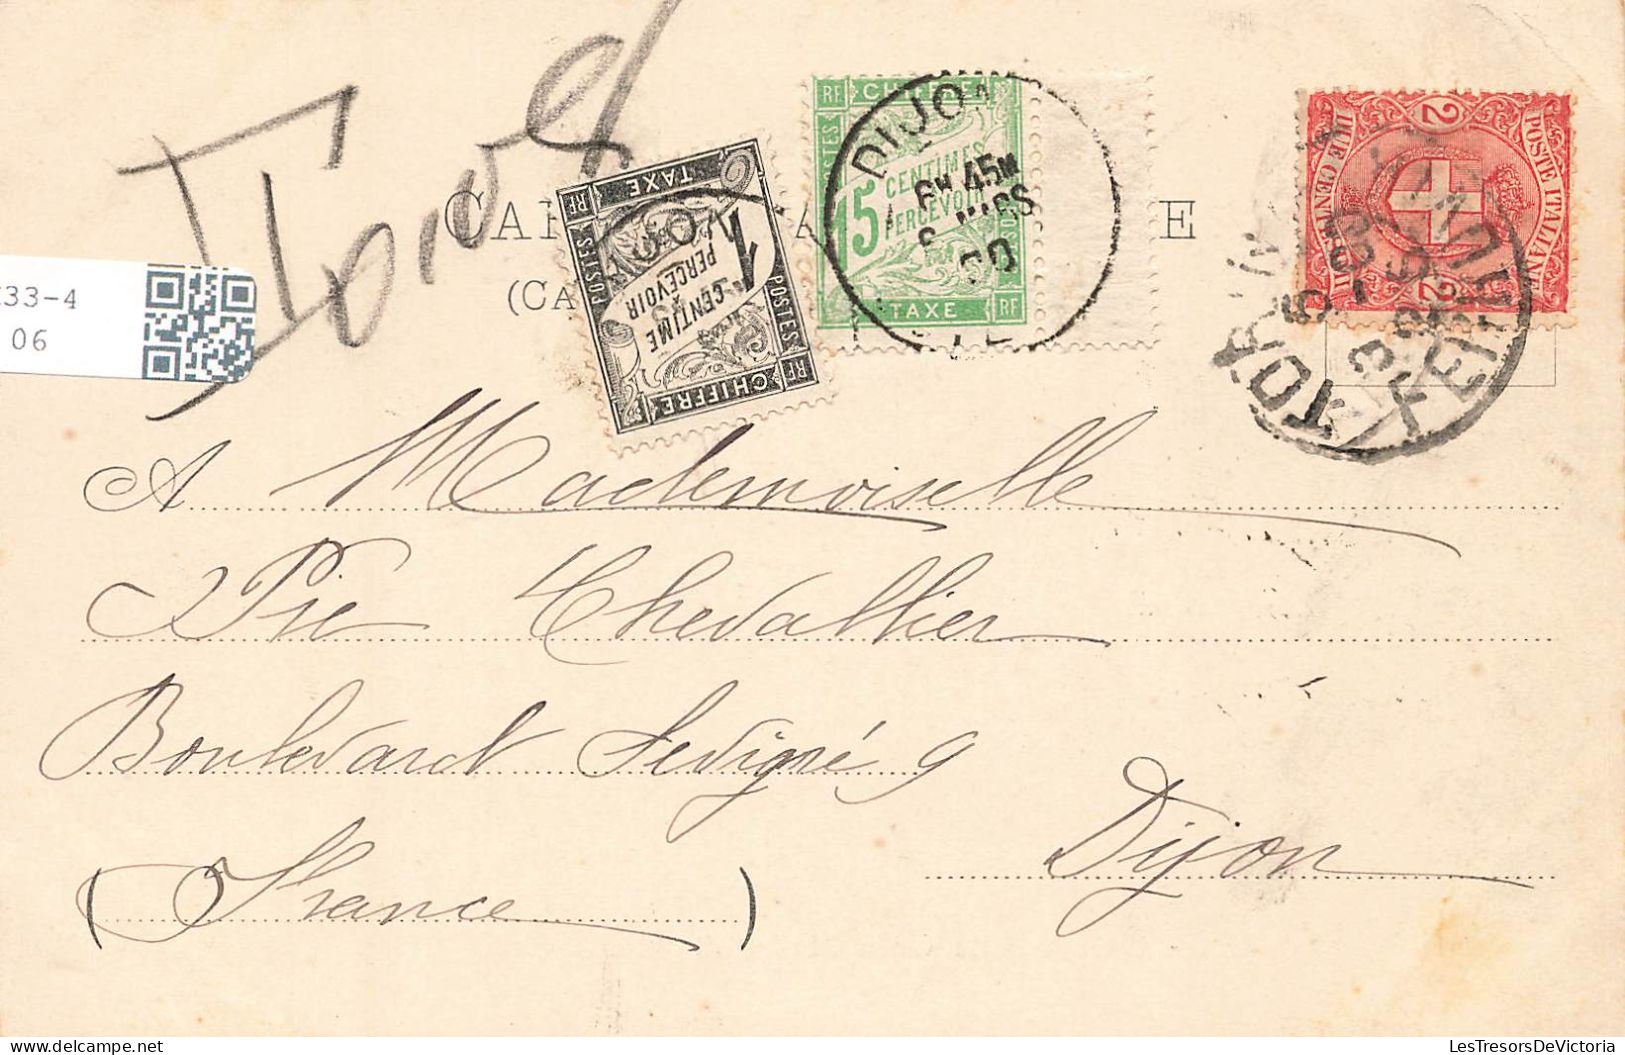 RF CHIFFRE
POSTES
15 CENTIMES
PERCEVOIR
TAXE RF
DIJON
6M 45M
MARS
00
RF TAXE
1 CENTIME
PERCEVOIR
POSTES
POSTES
CHIFFRE RF
POSTE ITALIANE
2
2
DUE CENTESIMI
TORINO
FERROVIA
CAR A E
(CA
33-4
06
A Mademoiselle
Pie Chevallier
Boulevard Sévigné 9
Dijon
(France)
LesTresorsDeVictoria